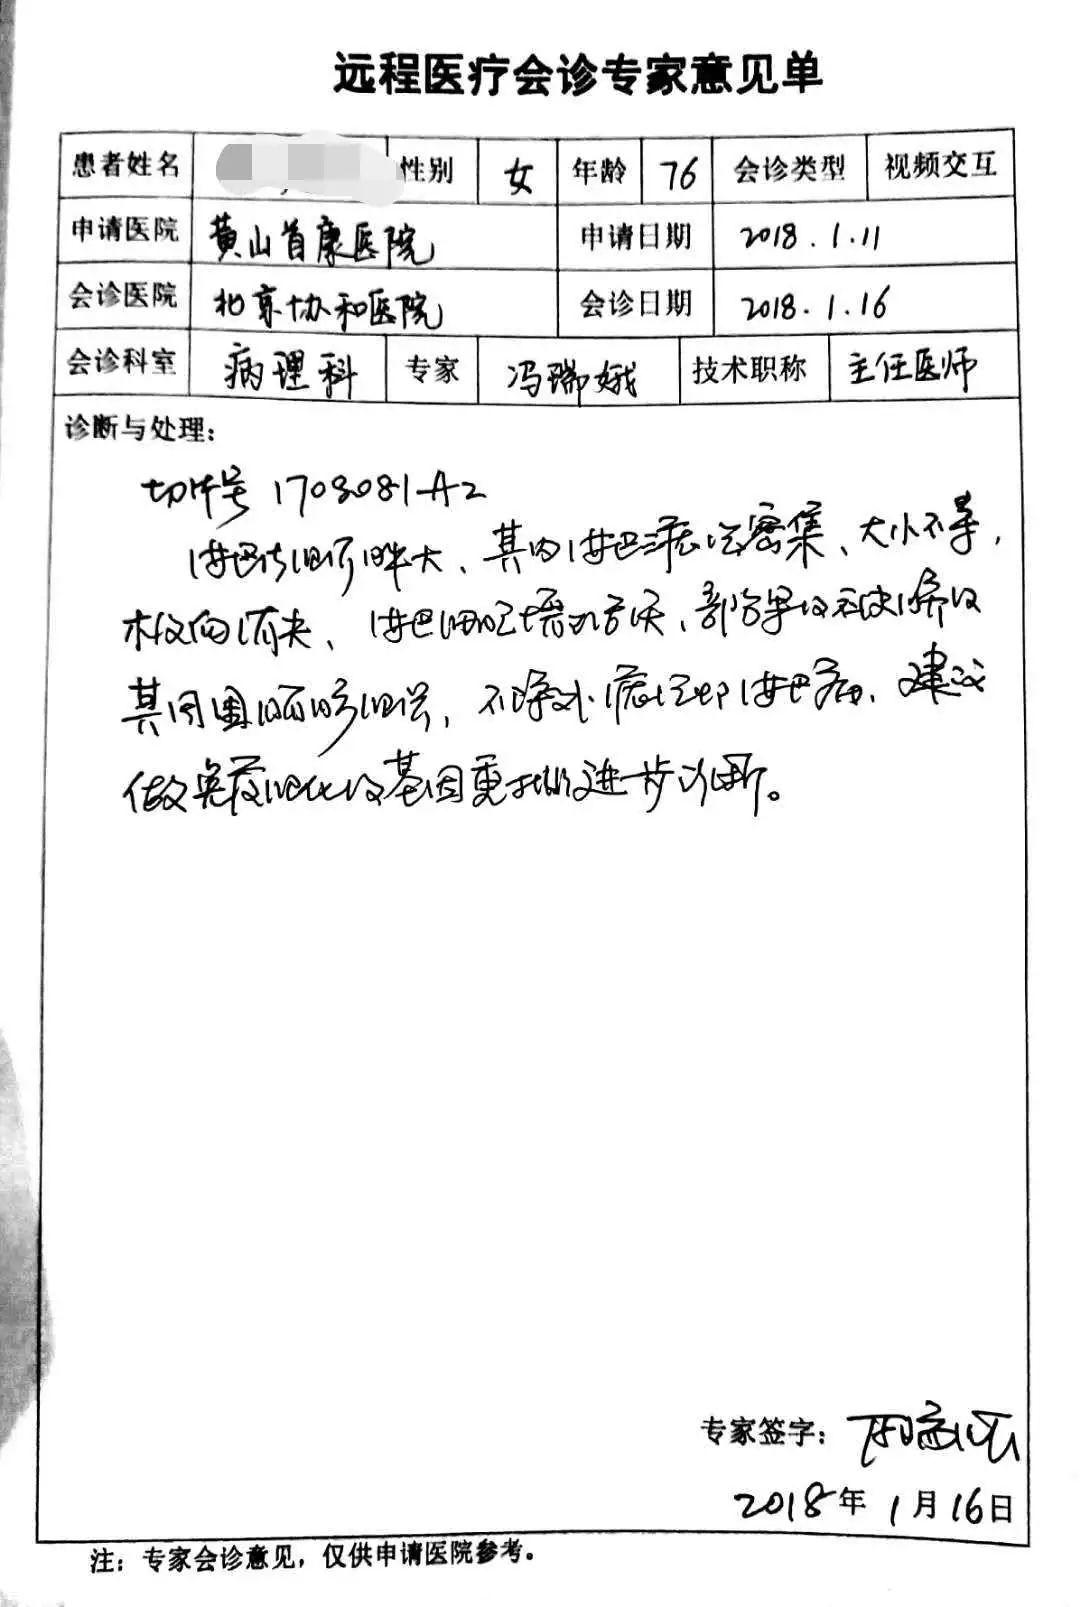 远程医疗会诊专家意见单
患者姓名 性别 女 年龄 76 会诊类型 视频交互
申请医院 黄山首康医院 申请日期 2018.1.11
会诊医院 北京协和医院 会诊日期 2018.1.16
会诊科室 病理科 专家 冯瑞娥 技术职称 主任医师
诊断与处理:
切片号 1708081-A2
淋巴结肿大、其内淋巴滤泡密集、大小不等,
极向消失、淋巴细胞增生活跃、部分呈
其周围脂肪组织, 不除外滤泡性淋巴瘤, 建议
做免疫组化及基因重排进一步诊断。
专家签字:
2018年1月16日
注: 专家会诊意见, 仅供申请医院参考。